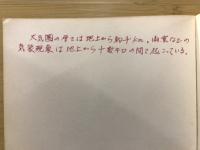 大気圏の厚さは地上から約千km、雨雲などの
気象現象は地上から十数キロの間で起こっている。